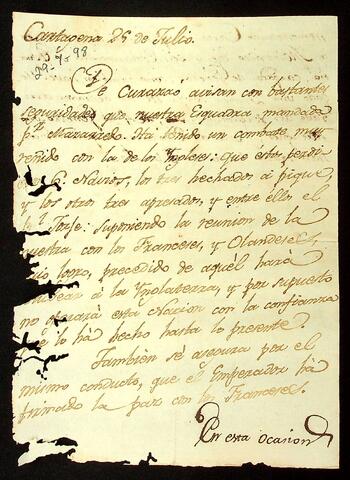 Cartagena 25 de Julio.
29-7-98
De Curazao avisan con bastantes
seguridades que nuestra Esquadra mandada
pr. Mazarredo. Ha tenido un combate muy
reñido con la de los Yngleses: que éstos perdie
6. Navios, los tres hechados á pique,
y los otros tres apresados, y entre ellos el
suponiendo la reunion de la
nuestra con los Franceses, y Olandeses,
cuio logro, precedido de aquél hará
á la Ynglaterra, y por supuesto
no operará esta Nacion con la confianza
que lo há hecho hasta lo presente.
Tambien sé asegura por el
mismo conducto, que el Emperador há
firmado la paz con los Franceses.
En esta Ocasion